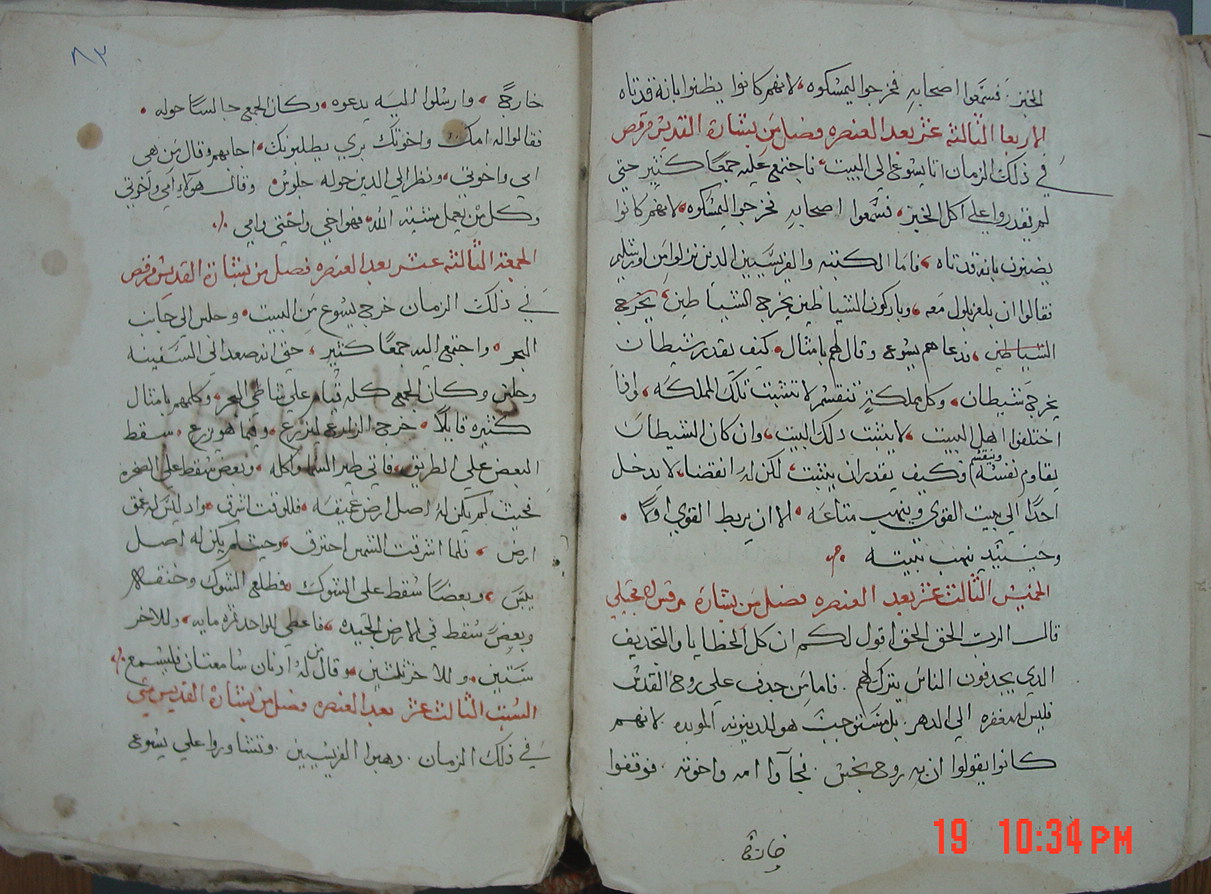 الخبز. فسمعوا اصحابه فخرجوا ليمسكوه، لانهم كانوا يظنوا بانه قد تاه
الاربعا الثالثة عشر بعد العنصره فصل من بشارة القديس مرقص
في ذلك الزمان اتا يسوع الي البيت، فاجتمع عليه جمعًا كثير حتي
لم يقدروا علي اكل الخبز، فسمعوا اصحابه فخرجوا ليمسكوه، لانهم كانوا
يضنون بانه قد تاه، فاما الكتبه والفريسيين الدين نزلوا من اورشليم
فقالوا ان بلعزبلول معه، وباركون الشياطين يخرج الشياطين، يخرج
الشياطين، فدعاهم يسوع وقال لهم بامثال، كيف يقدر شيطان
يخرج شيطان، وكل مملكةٍ تنقسم لا تتثبت تلك المملكه، واذا
اختلفوا اهل البيت، لا يثبت دلك البيت، وان كان الشيطان
يقاوم نفسه وينقسم فكيف يقدر ان يثبت، لكن له انقضا، لا يدخل
احدًا الي بيت القوي وينهب متاعه، الا ان يربط القوي اولًا،
وحينيدٍ ينهب بيته
الخميس الثالث عشر بعد العنصره فصل من بشارة مرقس الانجيلي
قال الرب الحق الحق اقول لكم ان كل الخطايا والتجديف
الدي يجدفون الناس يترك لهم. فاما من جدف علي روح القدس
فليس له مغفره الي الدهر. بل مستوجبٌ هو للدينونه الموبده. لانهم
كانوا يقولوا ان به روح نجس. فجآوا امه واخوته. فوقفوا
خارجًا
٨٢
خارجً، وارسلوا اليه يدعوه، وكان الجمع جالسًا حوله،
فقالوا له امك واخوتك بري يطلبونك، اجابهم وقال من هي
امي واخوتي، ونظر الي الدين حوله جلوس، وقال هولاء امي واخوتي
وكل من يعمل مشية الله، فهو اخي واختي وامي
الجمعة الثالثه عشر بعد العنصره فصل من بشارة القديس مرقص
في ذلك الزمان خرج يسوع من البيت، وجلس الي جانب
البحر، واجتمع اليه جمعًا كثير، حتي انه صعد الي السفينه
وجلس وكان الجمع كله قيام علي شاطي البحر، وكلمهم بامثال
كثيره قايلًا، خرج الزارع ليزرع، وفيما هو يزرع، سقط
البعض علي الطريق، فاتي طير السما واكله، وبعض سقط علي الصخره
بحيث لم يكن له اصل ارض عميقه، فللوقت اشرق، واد ليس له عمق
ارض، فلما اشرقت الشمس احترق، وحيث لم يكن له اصل
يبس، وبعضًا سقط علي الشوك، فطلع الشوك وخنقه
وبعض سقط في الارض الجيده، فاعطي للواحد ثمره مايه، وللاخر
ستين، وللاخر ثلثين، وقال من له ادنان سامعتان فليسمع
السبت الثالث عشر بعد العنصره فصل من بشارة القديس متي
في ذلك الزمان. دهبوا الفريسيين. وتشاوروا علي يسوع
19 10:34 PM